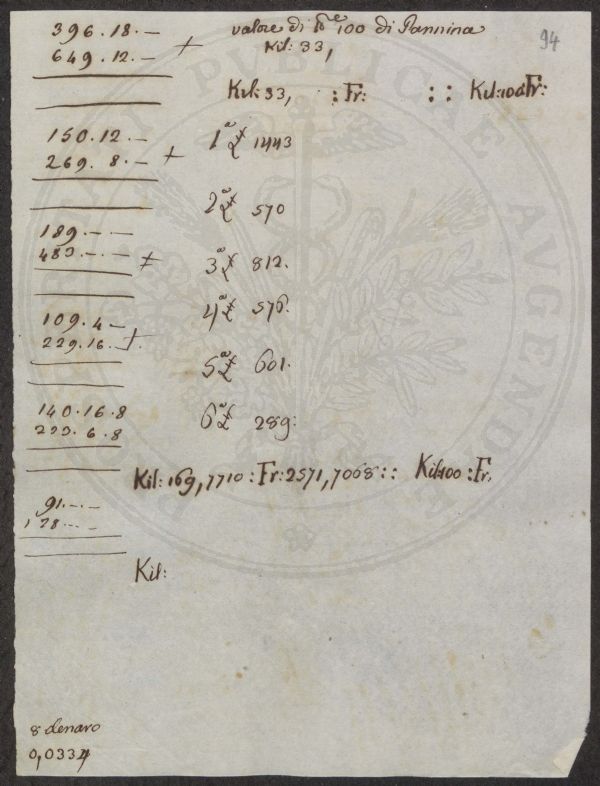 396.18.—
649.12.— +
valore di lb.e 100 di Pannina
Kil: 33,
94
Kil: 33, : Fr: : : Kil: 100 : Fr:
150.12.—
269. 8.— +
1a £ 1443
2a £ 570
189.— —
483.— — +
3a £ 812.
4a £ 576.
109.4—
229.16.— +
5a £ 601.
140.16.8
233.6.8
6a £ 289:
Kil: 169,7710 : Fr: 2571,7068 : : Kil: 100 : Fr.
91.— —
128.— —
Kil:
8 denaro
0,0334
PUBLICAE
AUGENDO